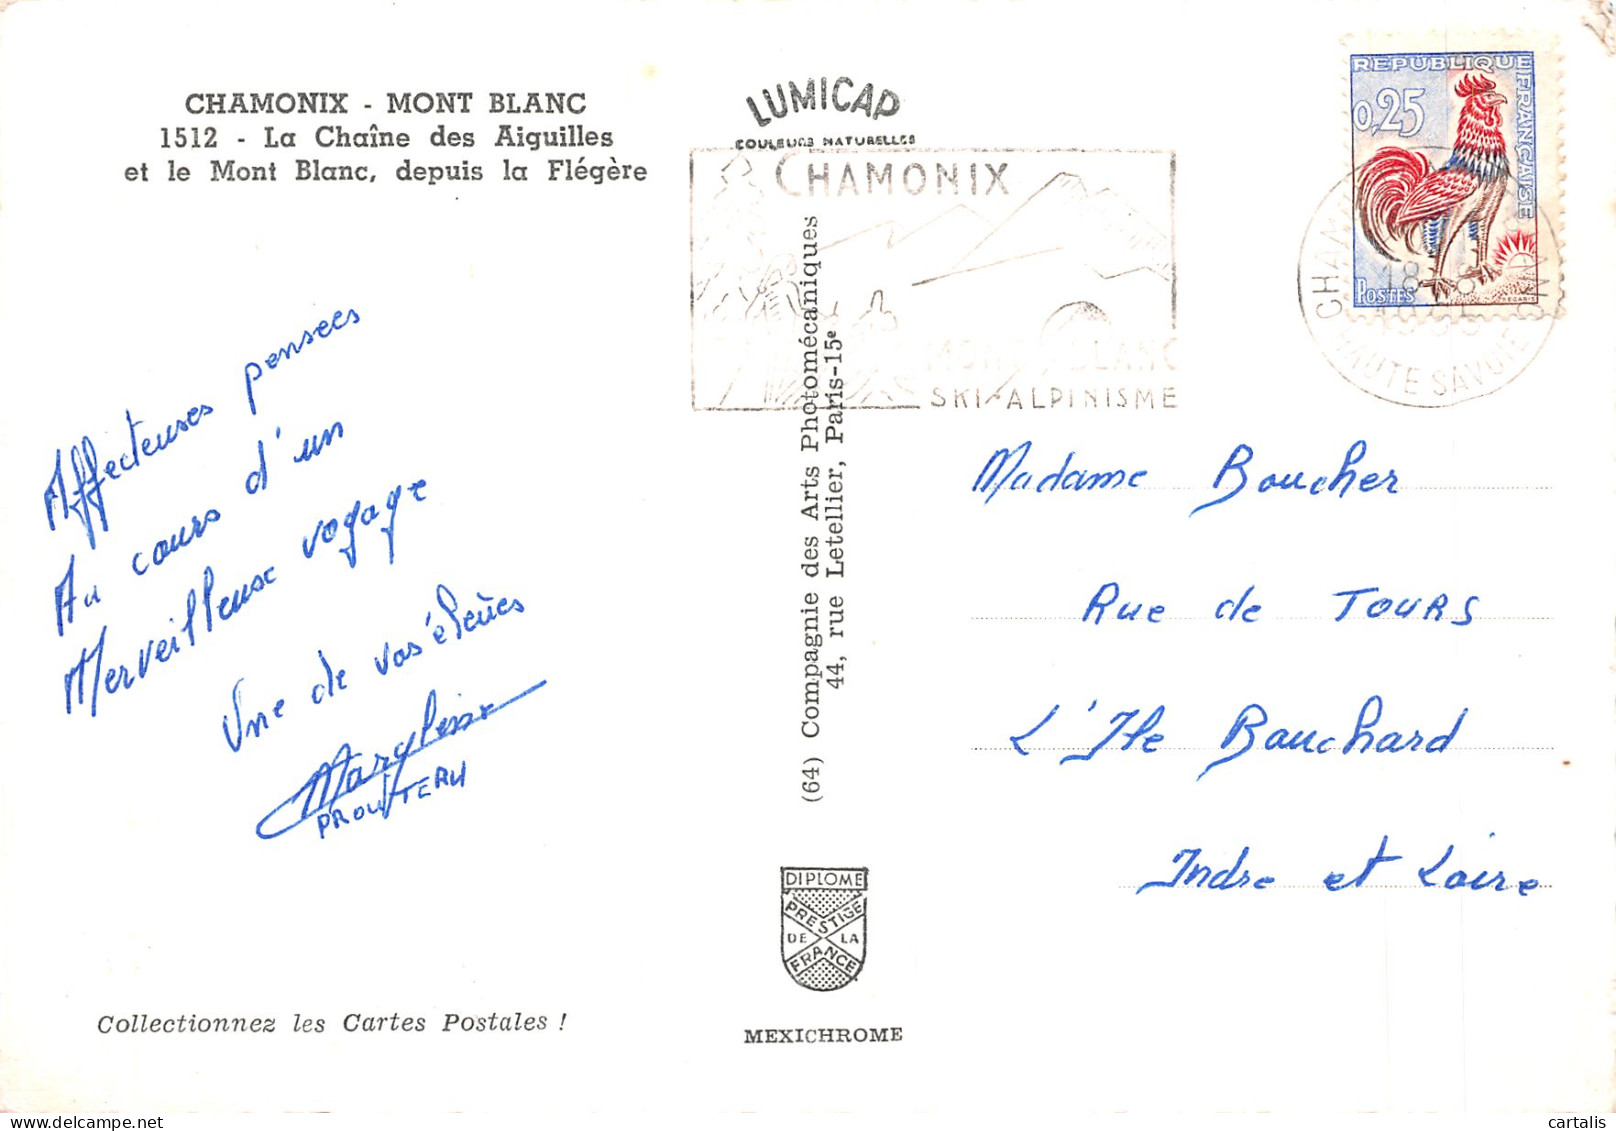 CHAMONIX - MONT BLANC
1512 - La Chaîne des Aiguilles
et le Mont Blanc, depuis la Flégère
Affecteuses pensees
Au cours d'un
Merveilleuse voyage
Une de vos élèves
PROUTEAU
Collectionnez les Cartes Postales !
LUMICAP
COULEURS NATURELLES
CHAMONIX
MONT BLANC
SKI-ALPINISME
(64) Compagnie des Arts Photomécaniques
44, rue Letellier, Paris-15e
DIPLOME
PRESTIGE
DE LA
FRANCE
MEXICHROME
REPUBLIQUE
FRANÇAISE
0,25
POSTES
HAUTE SAVOIE
Madame Boucher
Rue de TOURS
L'Ile Bouchard
Indre et Loire
cartalis